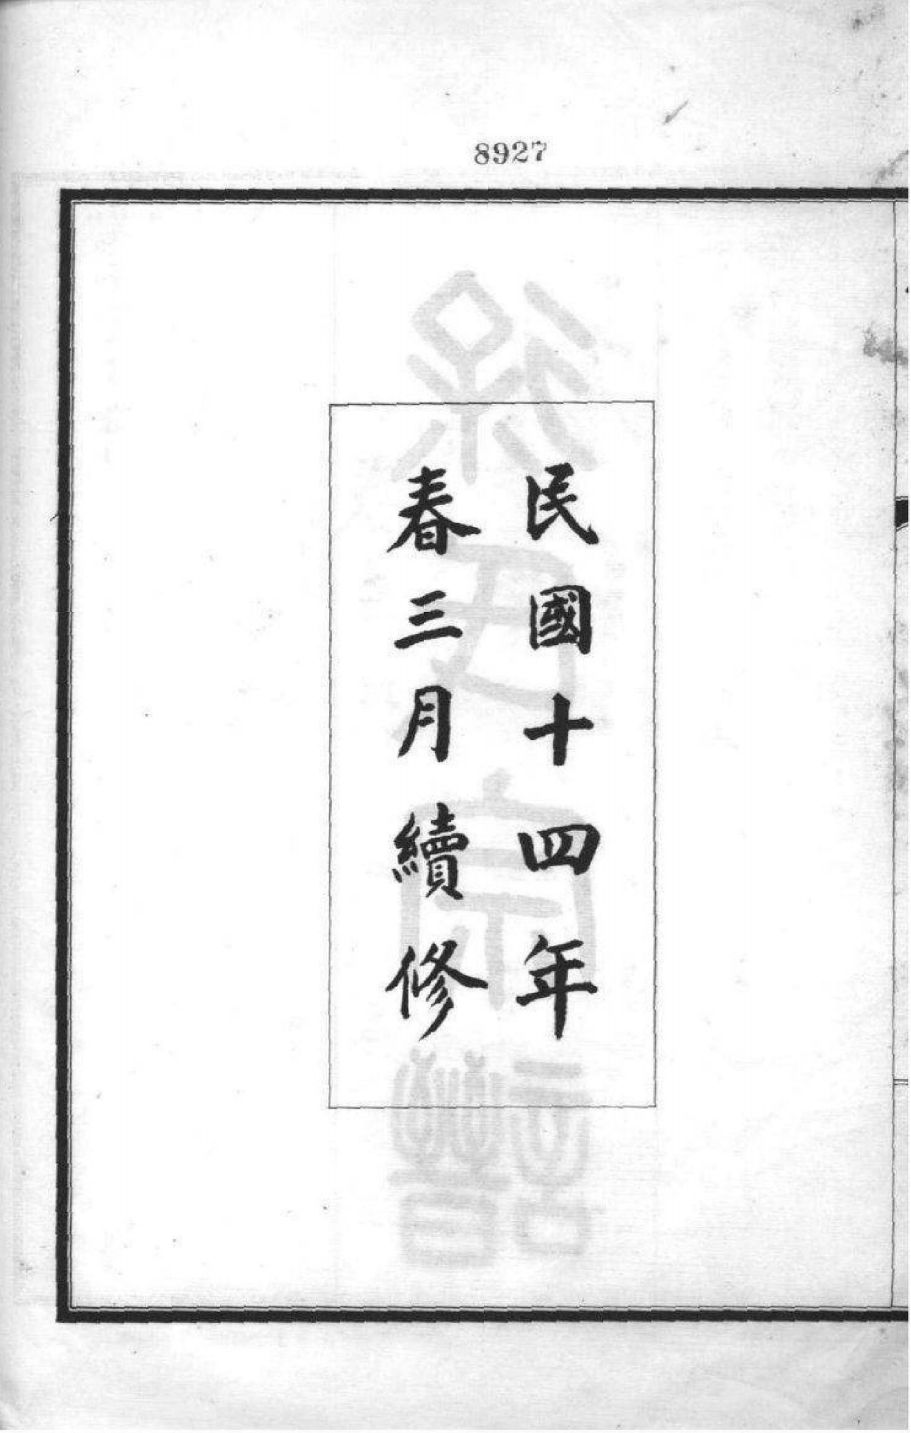 8927
民國十四年
春三月續修
氏宗譜